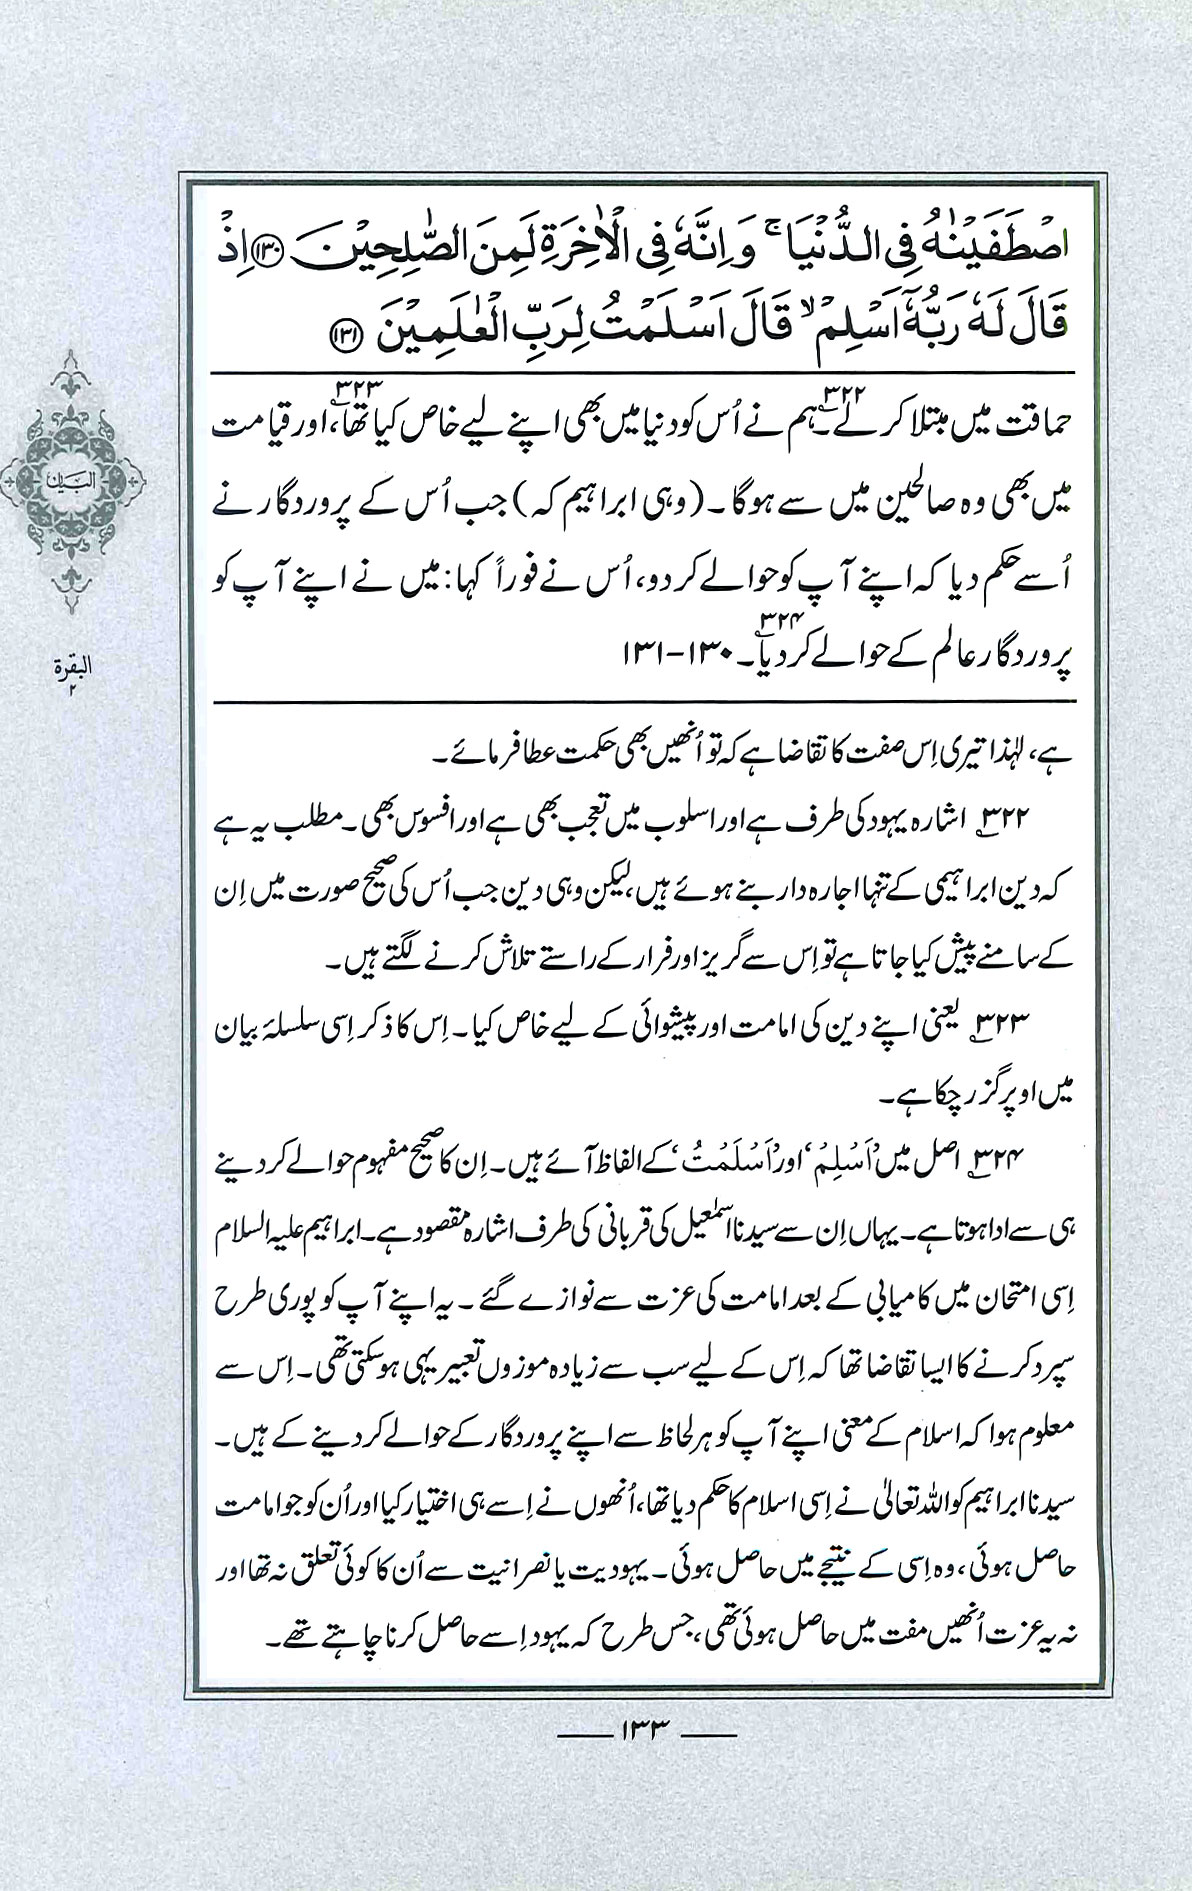 اصْطَفَیْنٰهُ فِی الدُّنْیَا ۚ وَ اِنَّهٗ فِی الْاٰخِرَةِ لَمِنَ الصّٰلِحِیْنَ ﴿۱۳۰﴾ اِذْ
قَالَ لَهٗ رَبُّهٗۤ اَسْلِمْ ۙ قَالَ اَسْلَمْتُ لِرَبِّ الْعٰلَمِیْنَ ﴿۱۳۱﴾
حماقت میں مبتلا کر لے۔۳۲۲ ہم نے اُس کو دنیا میں بھی اپنے لیے خاص کیا تھا۳۲۳، اور قیامت
میں بھی وہ صالحین میں سے ہوگا۔ (وہی ابراہیم کہ) جب اُس کے پروردگار نے
اُسے حکم دیا کہ اپنے آپ کو حوالے کر دو، اُس نے فوراً کہا: میں نے اپنے آپ کو
پروردگار عالم کے حوالے کر دیا۔۳۲۴ ۱۳۰-۱۳۱
البیان
البقرة
۲
ہے، لہٰذا تیری اِس صفت کا تقاضا ہے کہ تو اُنھیں بھی حکمت عطا فرمائے۔
۳۲۲؎ اشارہ یہود کی طرف ہے اور اسلوب میں تعجب بھی ہے اور افسوس بھی۔ مطلب یہ ہے
کہ دین ابراہیمی کے تنہا اجارہ دار بنے ہوئے ہیں، لیکن وہی دین جب اُس کی صحیح صورت میں اِن
کے سامنے پیش کیا جاتا ہے تو اِس سے گریز اور فرار کے راستے تلاش کرنے لگتے ہیں۔
۳۲۳؎ یعنی اپنے دین کی امامت اور پیشوائی کے لیے خاص کیا۔ اِس کا ذکر اِسی سلسلۂ بیان
میں اوپر گزر چکا ہے۔
۳۲۴؎ اصل میں ’اَسْلِمْ‘ اور ’اَسْلَمْتُ‘ کے الفاظ آئے ہیں۔ اِن کا صحیح مفہوم حوالے کر دینے
ہی سے ادا ہوتا ہے۔ یہاں اِن سے سیدنا اسمٰعیل کی قربانی کی طرف اشارہ مقصود ہے۔ ابراہیم علیہ السلام
اِسی امتحان میں کامیابی کے بعد امامت کی عزت سے نوازے گئے۔ یہ اپنے آپ کو پوری طرح
سپرد کرنے کا ایسا تقاضا تھا کہ اِس کے لیے سب سے زیادہ موزوں تعبیر یہی ہو سکتی تھی۔ اِس سے
معلوم ہوا کہ اسلام کے معنی اپنے آپ کو ہر لحاظ سے اپنے پروردگار کے حوالے کر دینے کے ہیں۔
سیدنا ابراہیم کو اللہ تعالیٰ نے اِسی اسلام کا حکم دیا تھا، اُنھوں نے اِسے ہی اختیار کیا اور اُن کو جو امامت
حاصل ہوئی، وہ اِسی کے نتیجے میں حاصل ہوئی۔ یہودیت یا نصرانیت سے اُن کا کوئی تعلق نہ تھا اور
نہ یہ عزت اُنھیں مفت میں حاصل ہوئی تھی، جس طرح کہ یہود اِسے حاصل کرنا چاہتے تھے۔
— ۱۳۳ —